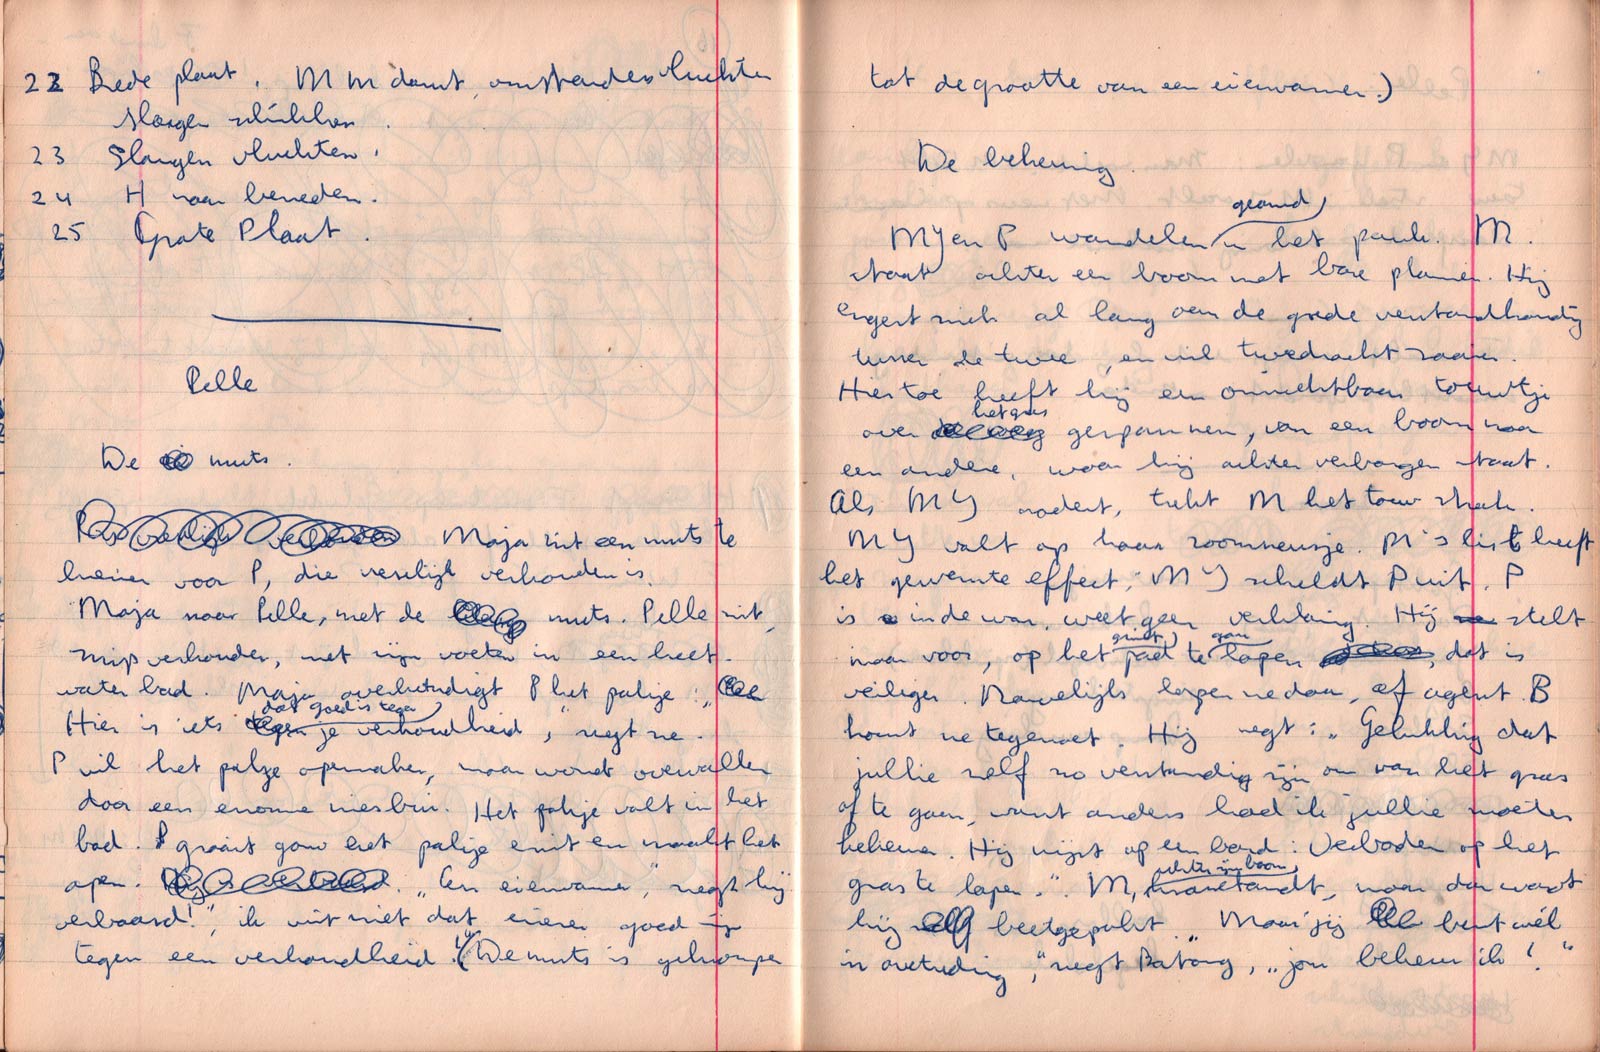 22 Brede plaat. M M danst, omstanders vluchten
slangen schikken.
23 Slangen vluchten.
24 H naar beneden.
25 Grote Plaat.
Pelle
De muts.
Maja zit een muts te
breien voor P, die vreselijk verkouden is.
Maja naar Pelle, met de muts. Pelle zit,
snipverkouden, met zijn voeten in een heet-
water bad. Maja overhandigt P het pakje: „
Hier is iets dat goed is tegen je verkoudheid", zegt ze.
P wil het pakje openmaken, maar wordt overvallen
door een enorme niesbui. Het pakje valt in het
bad. P graait gauw het pakje eruit en maakt het
open. „Een eierwarmer," zegt hij
verbaasd!", ik wist niet dat eieren goed zijn
tegen een verkoudheid. (De muts is gekrompen
tot de grootte van een eierwarmer.)
De bekeuring.
MY en P wandelen gearmd in het park. M.
staat achter een boom met boze plannen. Hij
ergert zich al lang aan de goede verstandhouding
tussen de twee, en wil tweedracht zaaien.
Hiertoe heeft hij een onzichtbaar touwtje
over het gras gespannen, van een boom naar
een andere, waar hij achter verborgen staat.
Als MY nadert, trekt M het touw strak.
MY valt op haar roomneusje. M's list heeft
het gewenste effect, MY scheldt P uit. P
is in de war, weet geen verklaring. Hij stelt
maar voor, op het grintpad te gaan lopen, dat is
veiliger. Nauwelijks lopen ze daar, of agent B
komt ze tegemoet. Hij zegt: „Gelukkig dat
jullie zelf zo verstandig zijn om van het gras
af te gaan, want anders had ik jullie moeten
bekeuren. Hij wijst op een bord: Verboden op het
gras te lopen.". M, achter zijn boom, maar dan wordt
hij beetgepakt. „Maar jij bent wél
in overtreding," zegt Batong, „jou bekeur ik!"